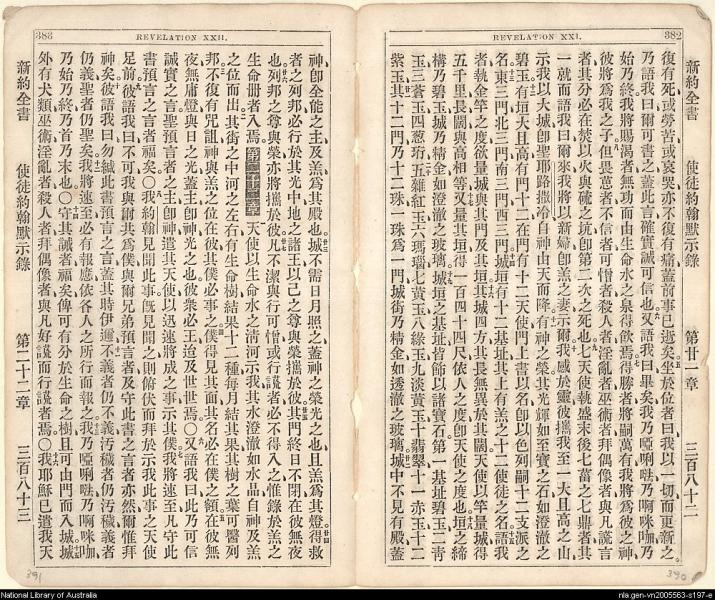 382
REVELATION XXI.
新約全書 使徒約翰默示錄 第廿一章 三百八十二
復有死或勞苦或哀哭亦不復有痛蓋前事已逝矣坐於位者曰我以一切而更新之
乃語我曰爾可書之蓋此言確實誠可信也又語我曰畢矣我乃啞唎㗳乃啊咪咖乃
始乃終我將賜渴者無功而由生命水之泉得飲焉得勝者將嗣萬有我將爲彼之神
彼將爲我之子但畏葸者不信者可憎者殺人者淫亂者巫術者拜偶像者與凡謊言
者其分必在焚以火與硫之坑卽第二次之死也七天使執盛末後七菑之七鼎者其
一就而語我曰爾來我將以新婦卽羔之妻示爾我感於靈彼攜我至一大且高之山
示我以大城卽聖耶路撒冷自神由天而降有神之榮其光輝如至寶之石如澄澈之
碧玉有垣大且高有門十二在門有十二天使門上書以名卽以色列嗣十二支派之
名東三門北三門南三門西三門城垣有十二基址其上有羔之十二使徒之名語我
者執金竿之度欲量城與其門及其垣其城四方其長無異於其闊天使以竿量城得
五千里長闊與高相等又量其垣得一百四十四尺依人之度卽天使之度也垣之締
構乃碧玉城乃精金如澄澈之玻璃城垣之基址皆飾以諸寶石第一基址碧玉二靑
玉三蒼玉四葱珩五雜紅玉六瑪瑙七黃玉八綠玉九淡黃玉十翡翠十一赤玉十二
紫玉其十二門乃十二珠一珠爲一門城街乃精金如透澈之玻璃城中不見有殿蓋
390
383
REVELATION XXII.
神卽全能之主及羔爲其殿也城不需日月照之蓋神之榮光之也且羔爲其燈得救
者之列邦必行於其光中地之諸王以己之尊與榮攜於彼其門終日不閉在彼無夜
也列邦之尊與榮亦將攜於彼凡不潔與行可憎或行謊者必不得入之惟錄於羔之
生命册者入焉第二十二章天使以生命水之淸河示我其水澄澈如水晶自神及羔
之位而出其街之中河之左右有生命樹結果十二種每月結其果其樹之葉可醫列
邦不復有咒詛神與羔之位在彼其僕必事之僕得見其面其名必在僕之額在彼無
夜無庸燈與日之光蓋主卽神光之也彼衆必王迨及世世焉〇又語我曰此乃可信
誠實之言聖預言者之主卽神遣其天使以迅速將成之事示其僕我將速至凡守此
書預言之言者福矣〇我約翰見聞此事旣見聞之則俯伏而拜於示我此事之天使
足前彼語我曰不可我與爾共爲僕與爾兄弟預言者及守此書之言者亦然爾惟拜
神矣彼語我曰勿緘此書預言之言蓋其時伊邇不義者仍不義污穢者仍污穢義者
仍義聖者仍聖矣我將速至必有報應依各人之所行而報之我乃啞唎㗳乃啊咪咖
乃始乃終乃首乃末也〇守其誡者福矣俾可有分於生命之樹且可由門而入城城
外有犬類巫術淫亂者殺人者拜偶像者與凡好謊而行謊者焉〇我耶穌已遣我天
新約全書 使徒約翰默示錄 第二十二章 三百八十三
391
National Library of Australia
nla.gen-vn2005563-s197-e